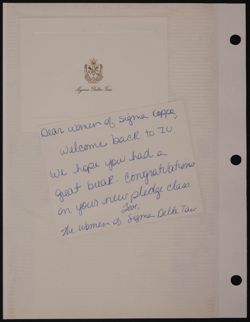 Sigma Delta Tau
Dear Women of Sigma Kappa,
Welcome back to IU
We hope you had a
great break. Congratulations
on your new pledge class.
Love,
The Women of Sigma Delta Tau